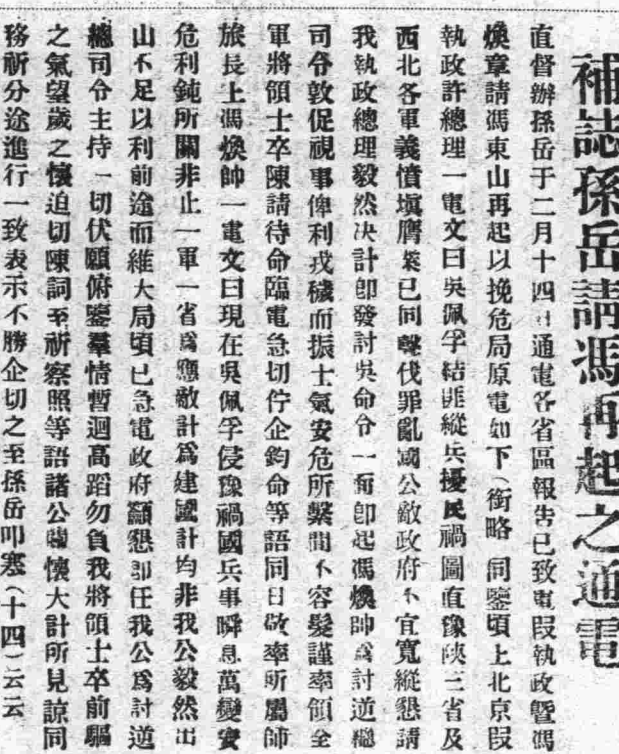 補誌孫岳請馮再起之通電
直督辦孫岳于二月十四日通電各省區報告已致電段執政暨馮
煥章請馮東山再起以挽危局原電如下（銜略）同鑒頃上北京段
執政許總理一電文曰吳佩孚結匪縱兵擾民禍圖直豫陝三省及
西北各軍義憤塡膺業已同聲伐罪亂國公敵政府不宜寬縱懇請
我執政總理毅然决計卽發討吳命令一面卽起馮煥帥爲討逆總
司令敦促視事俾利戎機而振士氣安危所繫間不容髮謹率領全
軍將領士卒陳請待命臨電急切佇企鈞命等語同日敬率所屬師
旅長上馮煥帥一電文曰現在吳佩孚侵豫禍國兵事瞬息萬變安
危利鈍所關非止一軍一省爲應敵計爲建國計均非我公毅然出
山不足以利前途而維大局頃已急電政府籲懇卽任我公爲討逆
總司令主持一切伏願俯鑒羣情暫迴高蹈勿負我將領士卒前驅
之氣望歲之懷迫切陳詞至祈察照等語諸公懷大計所見諒同
務祈分途進行一致表示不勝企切之至孫岳叩塞（十四）云云